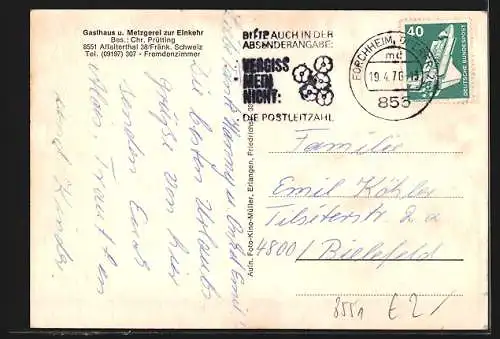 Gasthaus u. Metzgerei zur Einkehr
Bes.: Chr. Prütting
8551 Affalterthal 38/Fränk. Schweiz
Tel. (09197) 307 - Fremdenzimmer
BITTE AUCH IN DER
ABSENDERANGABE:
VERGISS
MEIN
NICHT:
DIE POSTLEITZAHL
FORCHHEIM
md
19.4.76
855
40
DEUTSCHE BUNDESPOST
u. Onkel Emil!
Die besten Urlaubs
grüße von hier
senden Euch
Kinder
Aufn. Foto-Kino-Müller, Erlangen, Friedrichstr. 30
Familie
Emil Köhler
Tilsiterstr. 2 a
4800/ Bielefeld
8551 € 2/